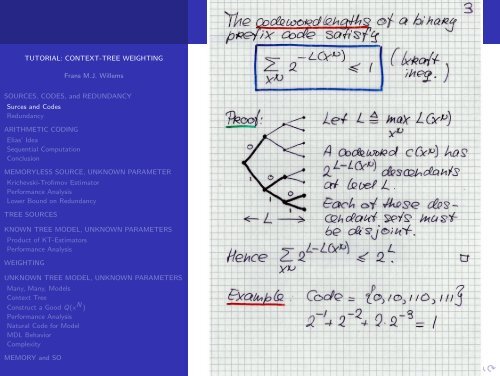 TUTORIAL: CONTEXT-TREE WEIGHTING
Frans M.J. Willems
SOURCES, CODES, and REDUNDANCY
Surces and Codes
Redundancy
ARITHMETIC CODING
Elias' Idea
Sequential Computation
Conclusion
MEMORYLESS SOURCE, UNKNOWN PARAMETER
Krichevski-Trofimov Estimator
Performance Analysis
Lower Bound on Redundancy
TREE SOURCES
KNOWN TREE MODEL, UNKNOWN PARAMETERS
Product of KT-Estimators
Performance Analysis
WEIGHTING
UNKNOWN TREE MODEL, UNKNOWN PARAMETERS
Many, Many, Models
Context Tree
Construct a Good Q(x^N)
Performance Analysis
Natural Code for Model
MDL Behavior
Complexity
MEMORY and SO
3
The codeword lengths of a binary
prefix code satisfy
∑ 2^{-L(x^N)} ≤ 1 (Kraft
x^N ineq.)
Proof:
Let L ≜ max L(x^N)
x^N
A codeword c(x^N) has
2^{L-L(x^N)} descendants
at level L.
Each of these des-
cendant sets must
be disjoint.
0
1
0
1
0
1
← L →
Hence ∑ 2^{L-L(x^N)} ≤ 2^L. □
x^N
Example Code = {0, 10, 110, 111}
2^{-1} + 2^{-2} + 2·2^{-3} = 1